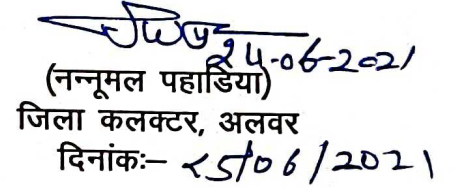 24-06-2021
(नन्नूमल पहाडिया)
जिला कलक्टर, अलवर
दिनांकः– 25/06/2021